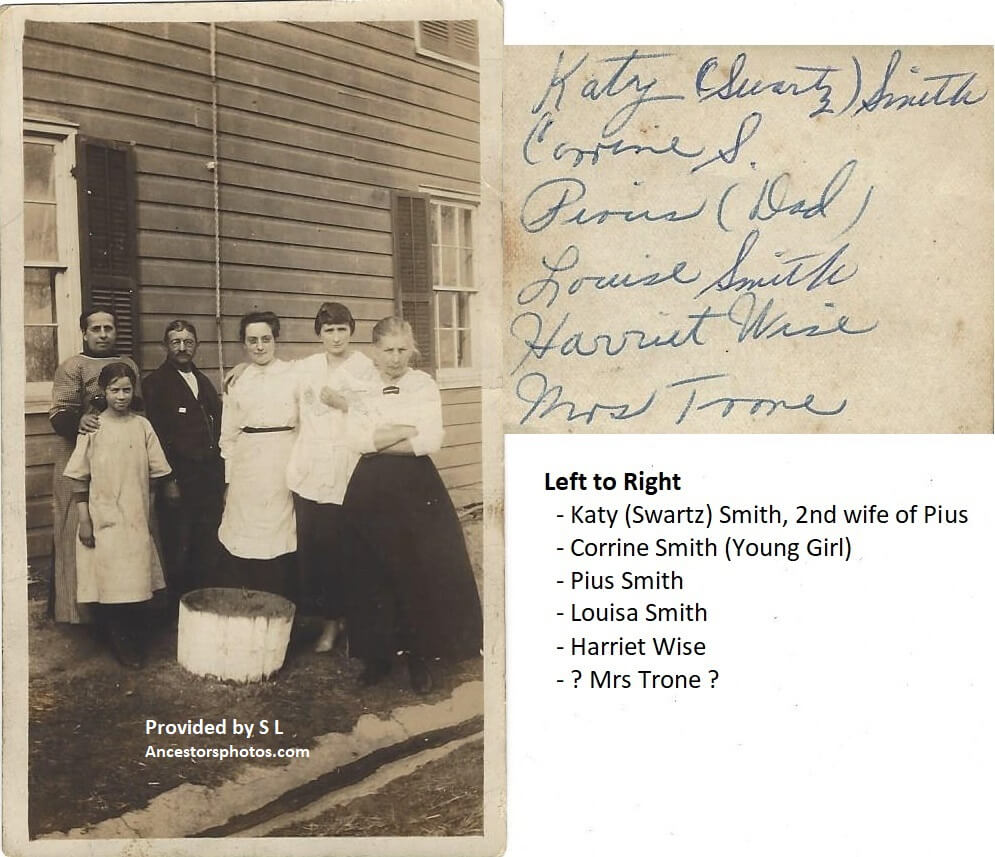 Katy (Swartz) Smith
Corrine S.
Pius (Dad)
Louise Smith
Harriet Wise
Mrs Trone
Left to Right
- Katy (Swartz) Smith, 2nd wife of Pius
- Corrine Smith (Young Girl)
- Pius Smith
- Louisa Smith
- Harriet Wise
- ? Mrs Trone ?
Provided by S L
Ancestorsphotos.com